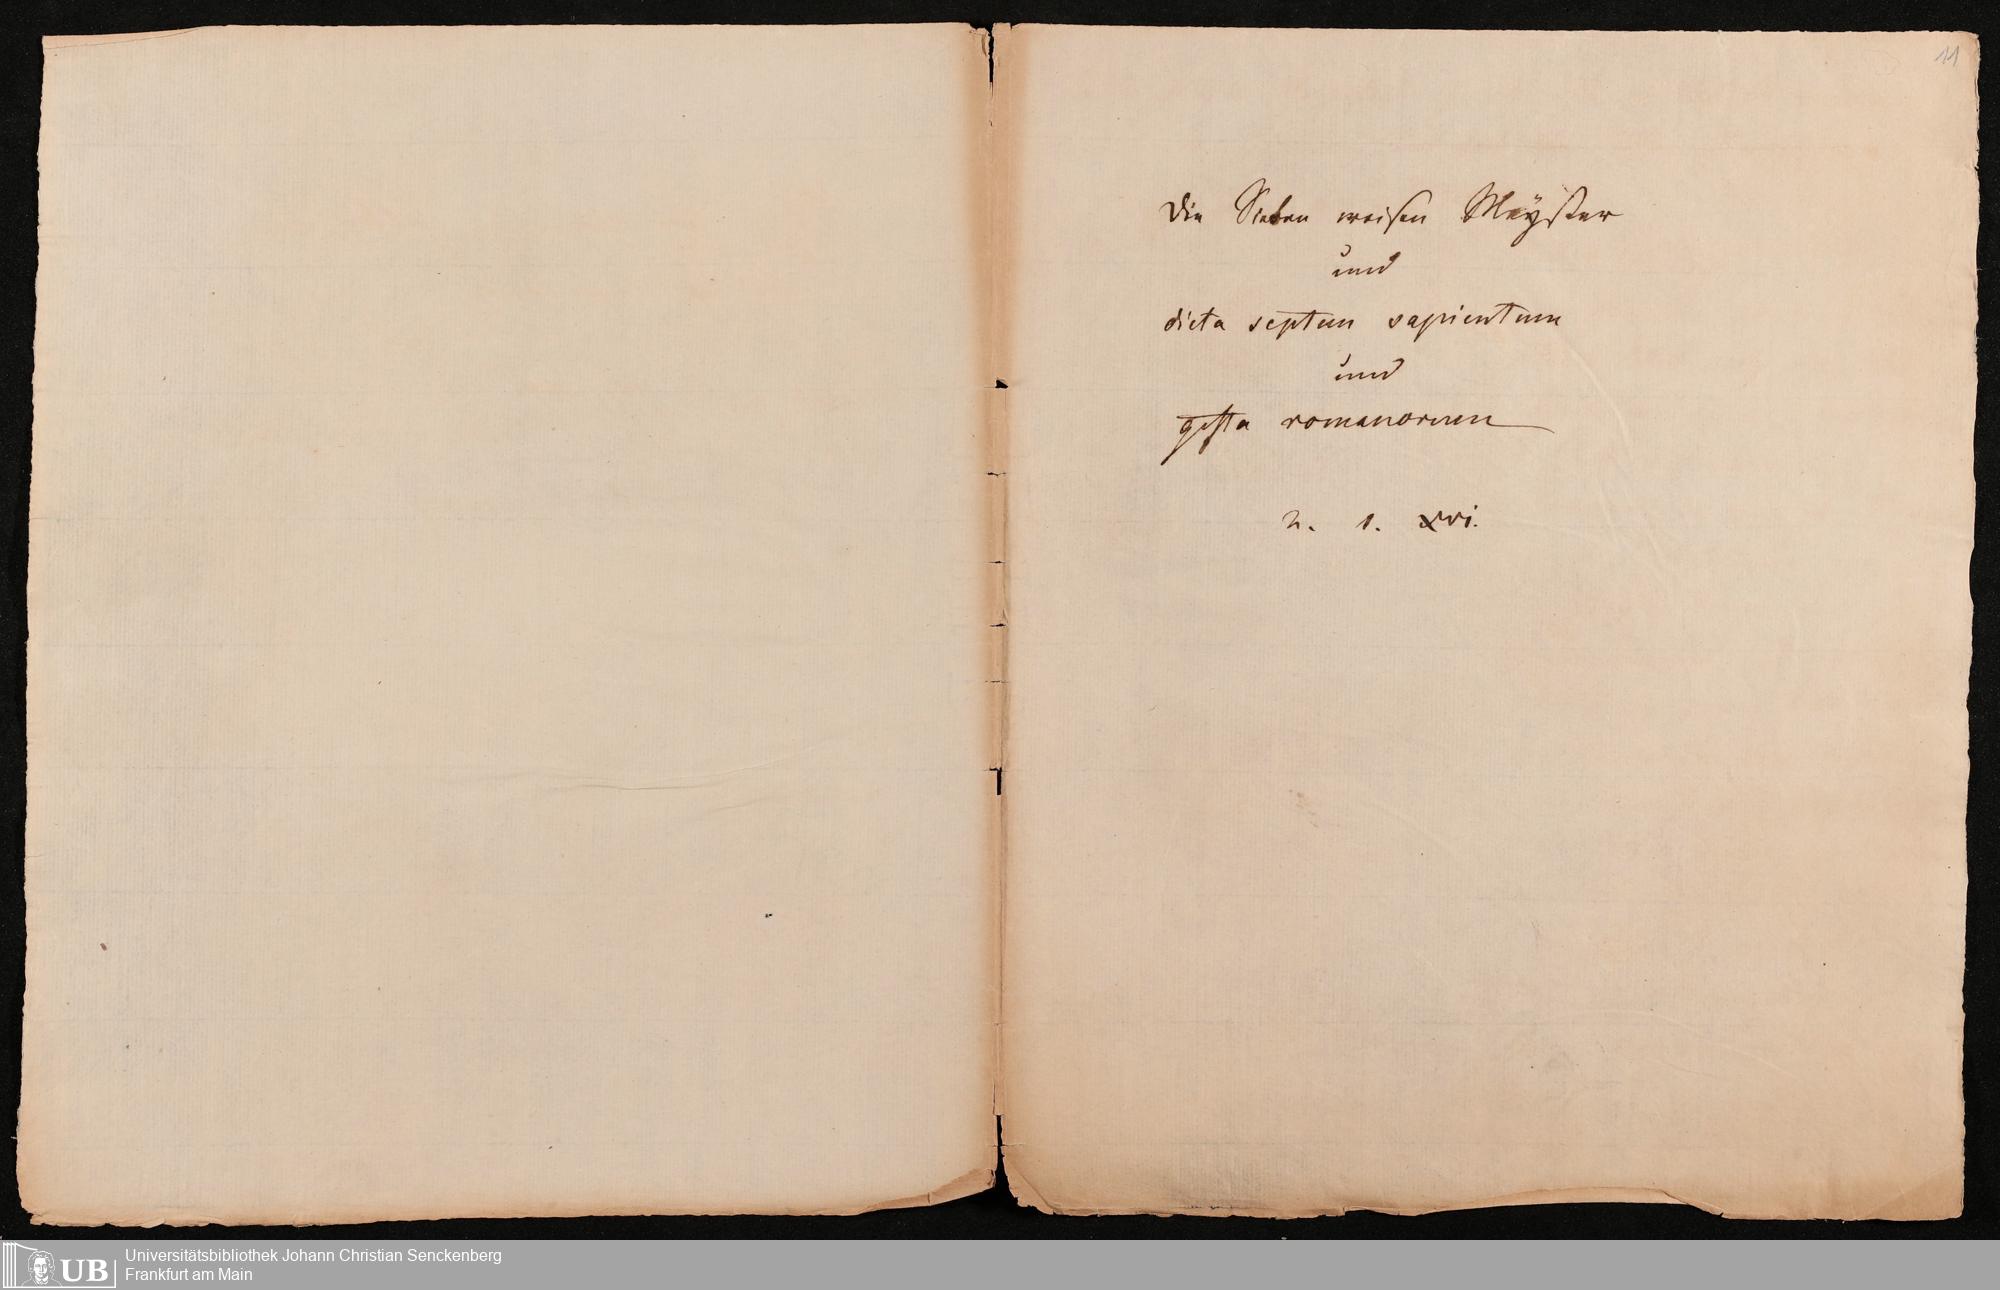 11
Die Sieben weisen Meyster
und
dicta septem sapientum
und
gesta romanorum
2. 1. xvi.
UB
Universitätsbibliothek Johann Christian Senckenberg
Frankfurt am Main